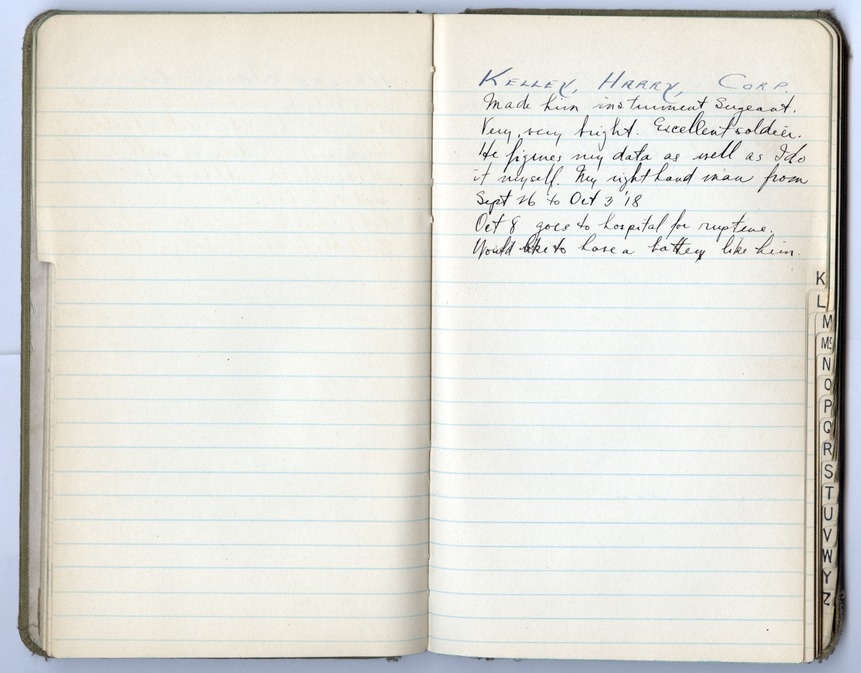 KELLEY, HARRY, CORP.
Made him instrument Sergeant.
Very, very bright. Excellent soldier.
He figures my data as well as I do
it myself. My right hand man from
Sept 26 to Oct 3 '18
Oct 8 goes to hospital for rupture.
Would like to have a battery like him.
K
L
M
Mc
N
O
P
Q
R
S
T
U
V
W
Y
Z